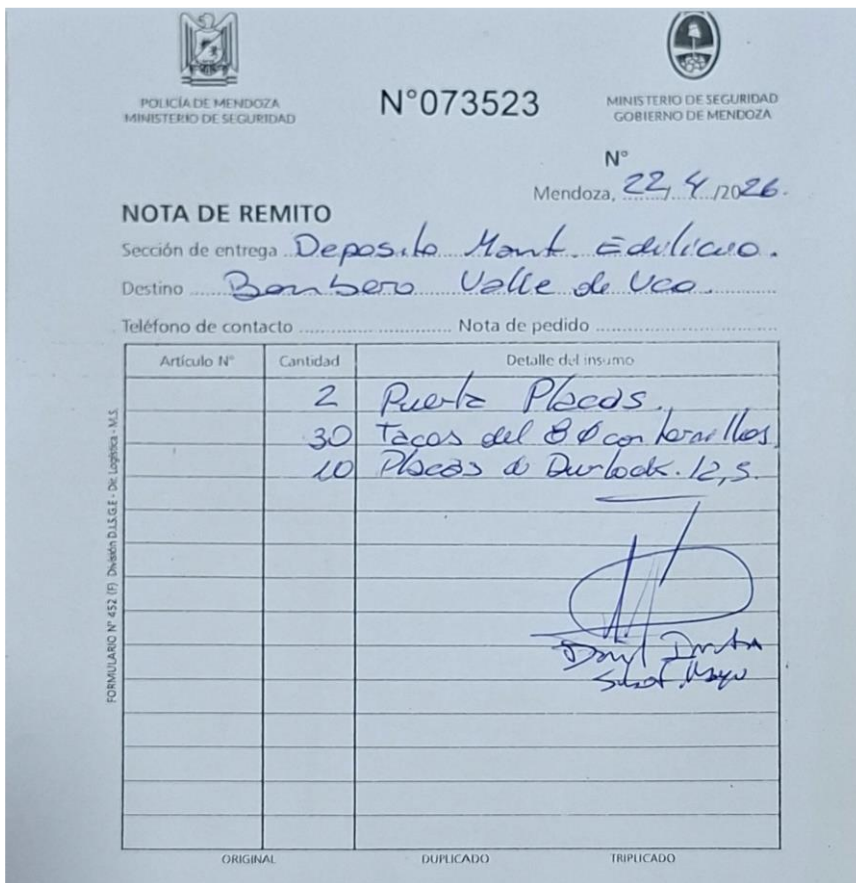 POLICÍA DE MENDOZA
MINISTERIO DE SEGURIDAD
N°073523
MINISTERIO DE SEGURIDAD
GOBIERNO DE MENDOZA
N°
Mendoza, 22/4/2026.
NOTA DE REMITO
Sección de entrega Deposito Mant. Edilicio.
Destino Bombero Valle de Uco.
Teléfono de contacto Nota de pedido
Artículo N° Cantidad Detalle del insumo
2 Puerta Placas.
30 Tacos del 8 Ø con tornillos
10 Placas de Durlock. 12,5.
Subof. Mayo
FORMULARIO N° 452 (F) División D.I.S.G.E - Dir. Logística - M.S.
ORIGINAL DUPLICADO TRIPLICADO